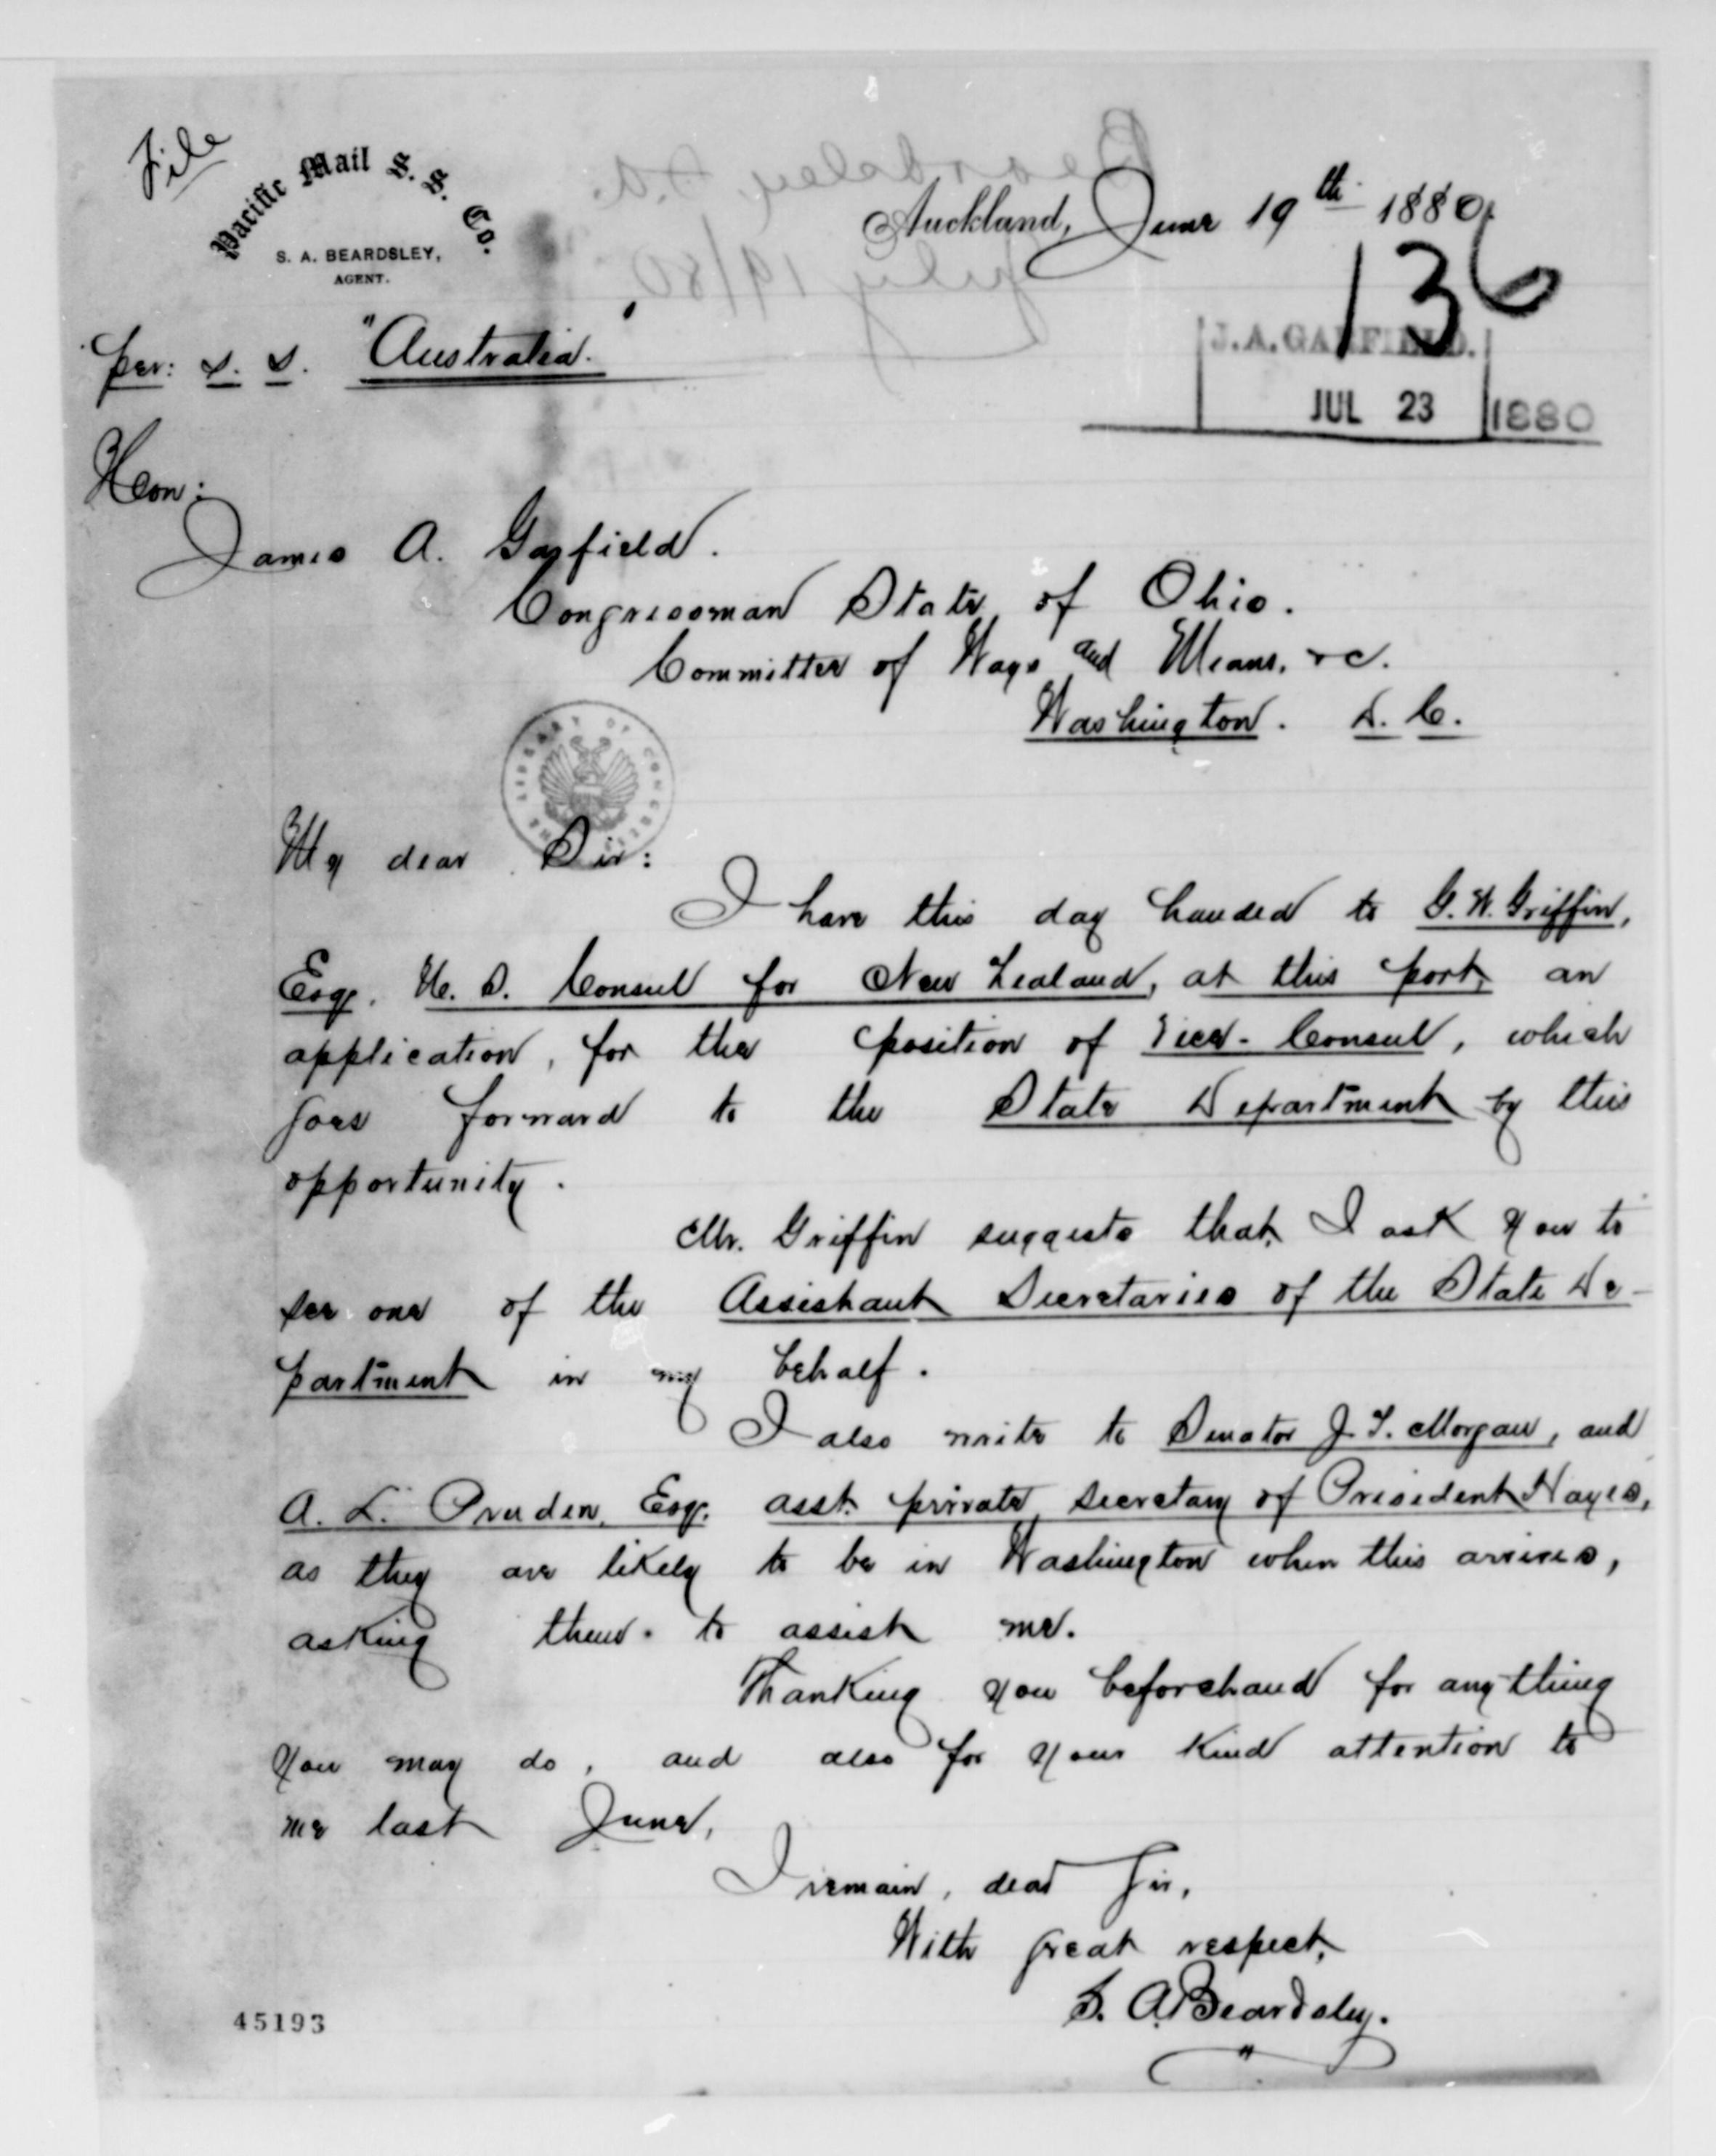 File
Pacific Mail S. S. Co.
S. A. BEARDSLEY,
AGENT.
Auckland, June 19th 1880
136
per: S. S. "Australia."
J. A. GARFIELD.
JUL 23 1880
Hon:
James A. Garfield.
Congressman State of Ohio.
Committee of Ways and Means, &c.
Washington. D. C.
THE LIBRARY OF CONGRESS
My dear Sir:
I have this day handed to G. W. Griffin,
Esq. U. S. Consul for New Zealand, at this port, an
application, for the position of Vice-Consul, which
goes forward to the State Department by this
opportunity.
Mr. Griffin suggests that, I ask you to
see one of the Assistant Secretaries of the State De-
partment in my behalf.
I also write to Senator J. T. Morgan, and
A. L. Pruden, Esq. asst. private secretary of President Hayes,
as they are likely to be in Washington when this arrives,
asking them to assist me.
Thanking you beforehand for anything
you may do, and also for your kind attention to
me last June,
I remain, dear Sir,
With great respect,
S. A. Beardsley.
45193